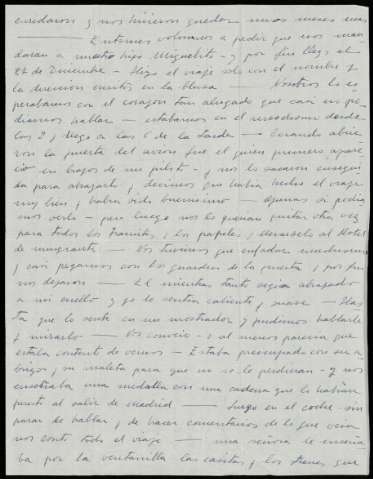 enredaron y nos hicieron quedar unos meses mas
— Entonces volvimos a pedir que nos man
daran a nuestro hijo Miguelito — y por fin llegó el
27 de Diciembre — Hizo el viaje solo con el nombre y
la direccion escritos en la blusa — Nosotros lo es
perabamos con el corazon tan ahogado que casi no po
diamos hablar — estabamos en el aerodromo desde
las 2, y llego a las 6 de la tarde — Cuando abrie
ron la puerta del avion fue el quien primero apare
ció en brazos de un piloto — y nos lo sacaron ensegui
da para abrazarlo, y decirnos que habia hecho el viaje
muy bien, y habia sido buenisimo — Apenas si podia
mos verlo — pero luego nos lo querian quitar otra vez
para todos los tramites, y los papeles, y llevarselo al Hotel
de inmigrante — Nos tuvimos que enfadar muchisimo
y casi pegarnos con los guardias de la puerta, y por fin
nos dejaron — El mientras tanto seguia abrazado
a mi cuello y yo le sentia caliente, y suave — Has
ta que lo sente en un mostrador y pudimos hablarle
y mirarlo — Nos conocio — o al menos parecia que
estaba contento de vernos — Estaba preocupado con su a
brigo, y su maleta para que no se le perdieran — y nos
enseñaba una medalla con una cadena que le habian
puesto al salir de Madrid — Luego en el coche sin
parar de hablar, y de hacer comentarios de lo que veia
nos conto todo el viaje — una señora le enseña
ba por la ventanilla las casitas, y los trenes que